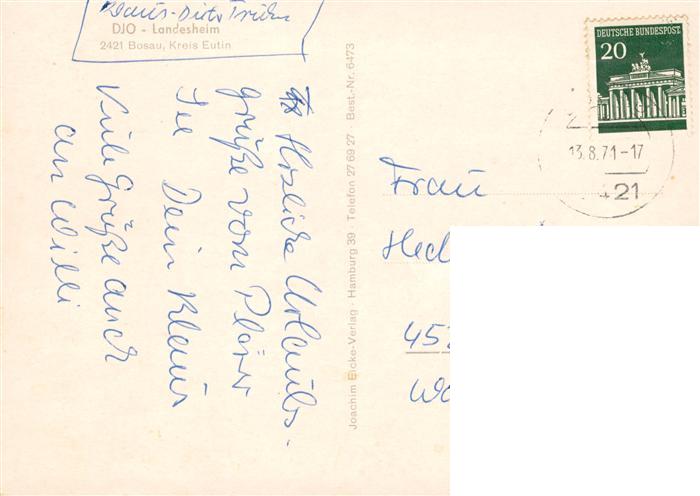 Klaus-Dieter
DJO - Landesheim
2421 Bosau, Kreis Eutin
Herzliche Urlaubs-
grüße vom Plöner
See Dein Klaus
Viele Grüße auch
an Willi
Joachim Eicke-Verlag · Hamburg 39 · Telefon 27 69 27 · Best.-Nr. 6473
DEUTSCHE BUNDESPOST
20
13.8.71-17
21
Frau